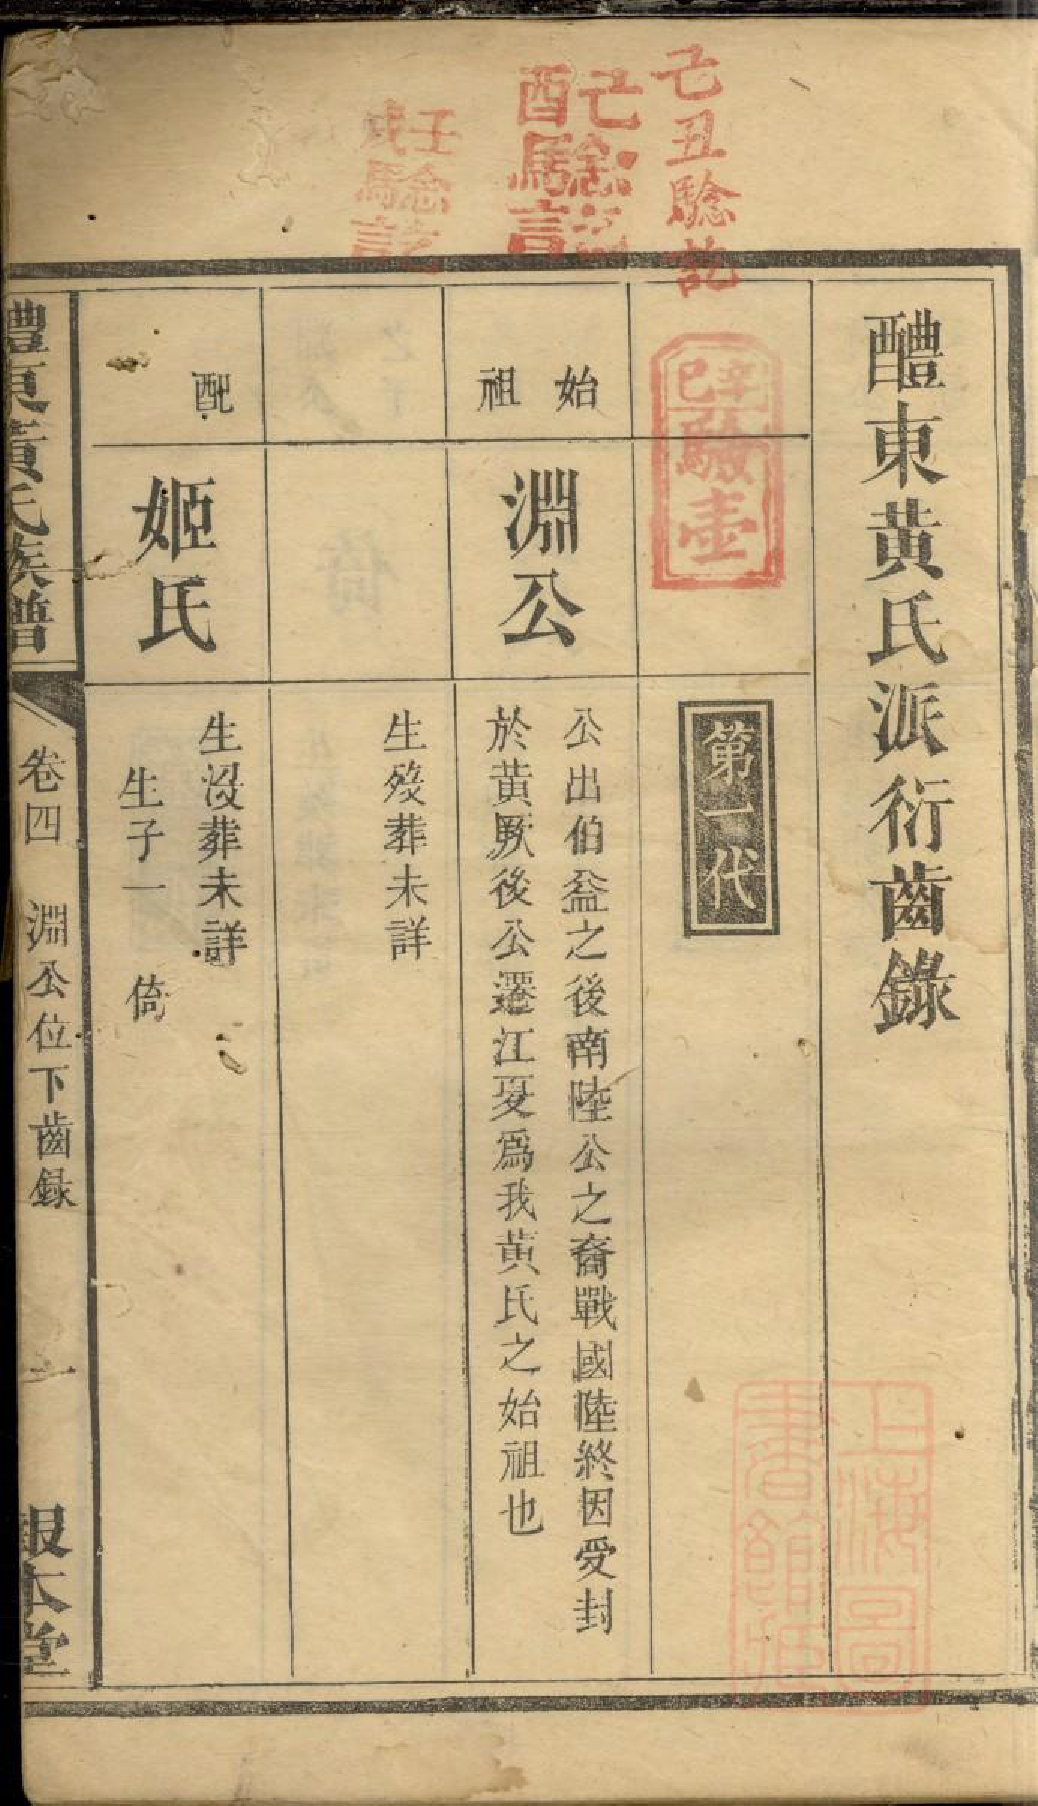 醴東黃氏派衍齒錄
第一代
始祖
淵公
公出伯益之後南陸公之裔戰國陸終因受封
於黃厥後公遷江夏爲我黃氏之始祖也
生歿葬未詳
配
姬氏
生沒葬未詳
生子一 倚
醴東黃氏族譜
卷四 淵公位下齒録
一
報本堂
己丑驗訖
己酉驗訖
壬戌驗訖
辛巳驗壹
上海圖書館藏